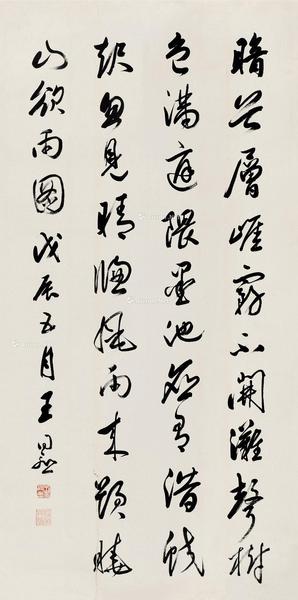 暗谷層崖霧不開灘聲樹
色滿庭隈墨池應有潛蛟
起忽見晴牕風雨來題曉
山欲雨圖戊辰五月王同愈